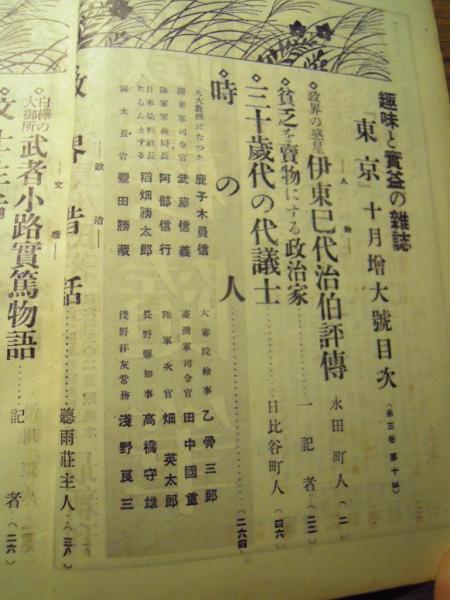 趣味と實益の雜誌
「東京」十月增大號目次（第三卷第十號）
―人物―
◇政界の惑星 伊東巳代治伯評傳……永田町人（二）
◇貧乏を賣物にする政治家……一記者（二二）
◇三十歲代の代議士……日比谷町人（四六）
◇時の人……（二六四）
九大教授になつた 鹿子木員信
大審院檢事 乙骨三郎
關東軍司令官 武藤信義
臺灣軍司令官 田中國重
陸軍軍務局長 阿部信行
陸軍次官 畑英太郎
日本染料社長たらんとする 稻畑勝太郎
長野縣知事 高橋守雄
樺太長官 豐田勝藏
淺野洋灰常務 淺野良三
―政治―
政界昔話……聽雨莊主人（三八）
―文壇―
白樺の大御所 武者小路實篤物語……記者（二六）